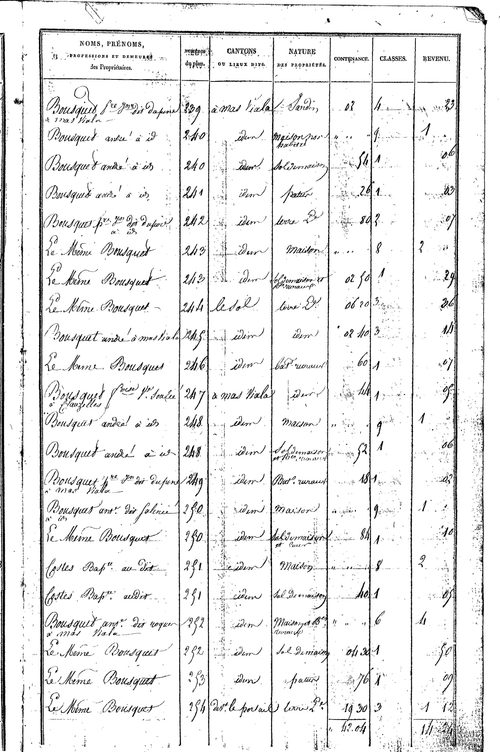 NOMS, PRÉNOMS, PROFESSIONS ET DEMEURES des Propriétaires. NUMÉROS du plan. CANTONS OU LIEUX DITS. NATURE DES PROPRIÉTÉS. CONTENANCE. CLASSES. REVENU.
Bousquet dit 239 à mas Viala Jardin 02 4 23
à mas Viala
Bousquet andré à id 240 idem maison 9 1
Bousquet andré à id 240 idem Sol de maison 54 1 06
Bousquet andré à id 241 idem patus 26 1 03
Bousquet dit 242 idem terre Lre 80 2 07
à id
Le Même Bousquet 243 idem Maison 8 2
Le Même Bousquet 243 idem Sol de maison et 02 50 1 29
Le Même Bousquet 244 le Sol terre Lre 06 20 3 36
Bousquet andré à mas Viala 245 idem idem 02 40 3 14
Le Même Bousquet 246 idem bat. ruraux 60 1 07
Bousquet 247 à mas Viala idem 44 1 05
Bousquet andré à id 248 idem maison 9 1
Bousquet andré à id 248 idem Sol de maison 52 1 06
Bousquet dit 249 idem Bat. ruraux 18 1 02
à mas Viala
Bousquet ant. dit 250 idem Maison 9 1
à id
Le Même Bousquet 250 idem Sol de maison 84 1 10
et cour
Costes Bap.te au dit 251 idem Maison 8 2
Costes Bap.te audit 251 idem Sol de maison 40 1 05
Bousquet ant. dit 252 idem Maison et 6 4
à mas Viala
Le Même Bousquet 252 idem Sol de maison 04 30 1 50
Le Même Bousquet 253 idem patus 76 1 09
Le Même Bousquet 254 le portail terre Lre 19 30 3 1 12
42 04 14 24